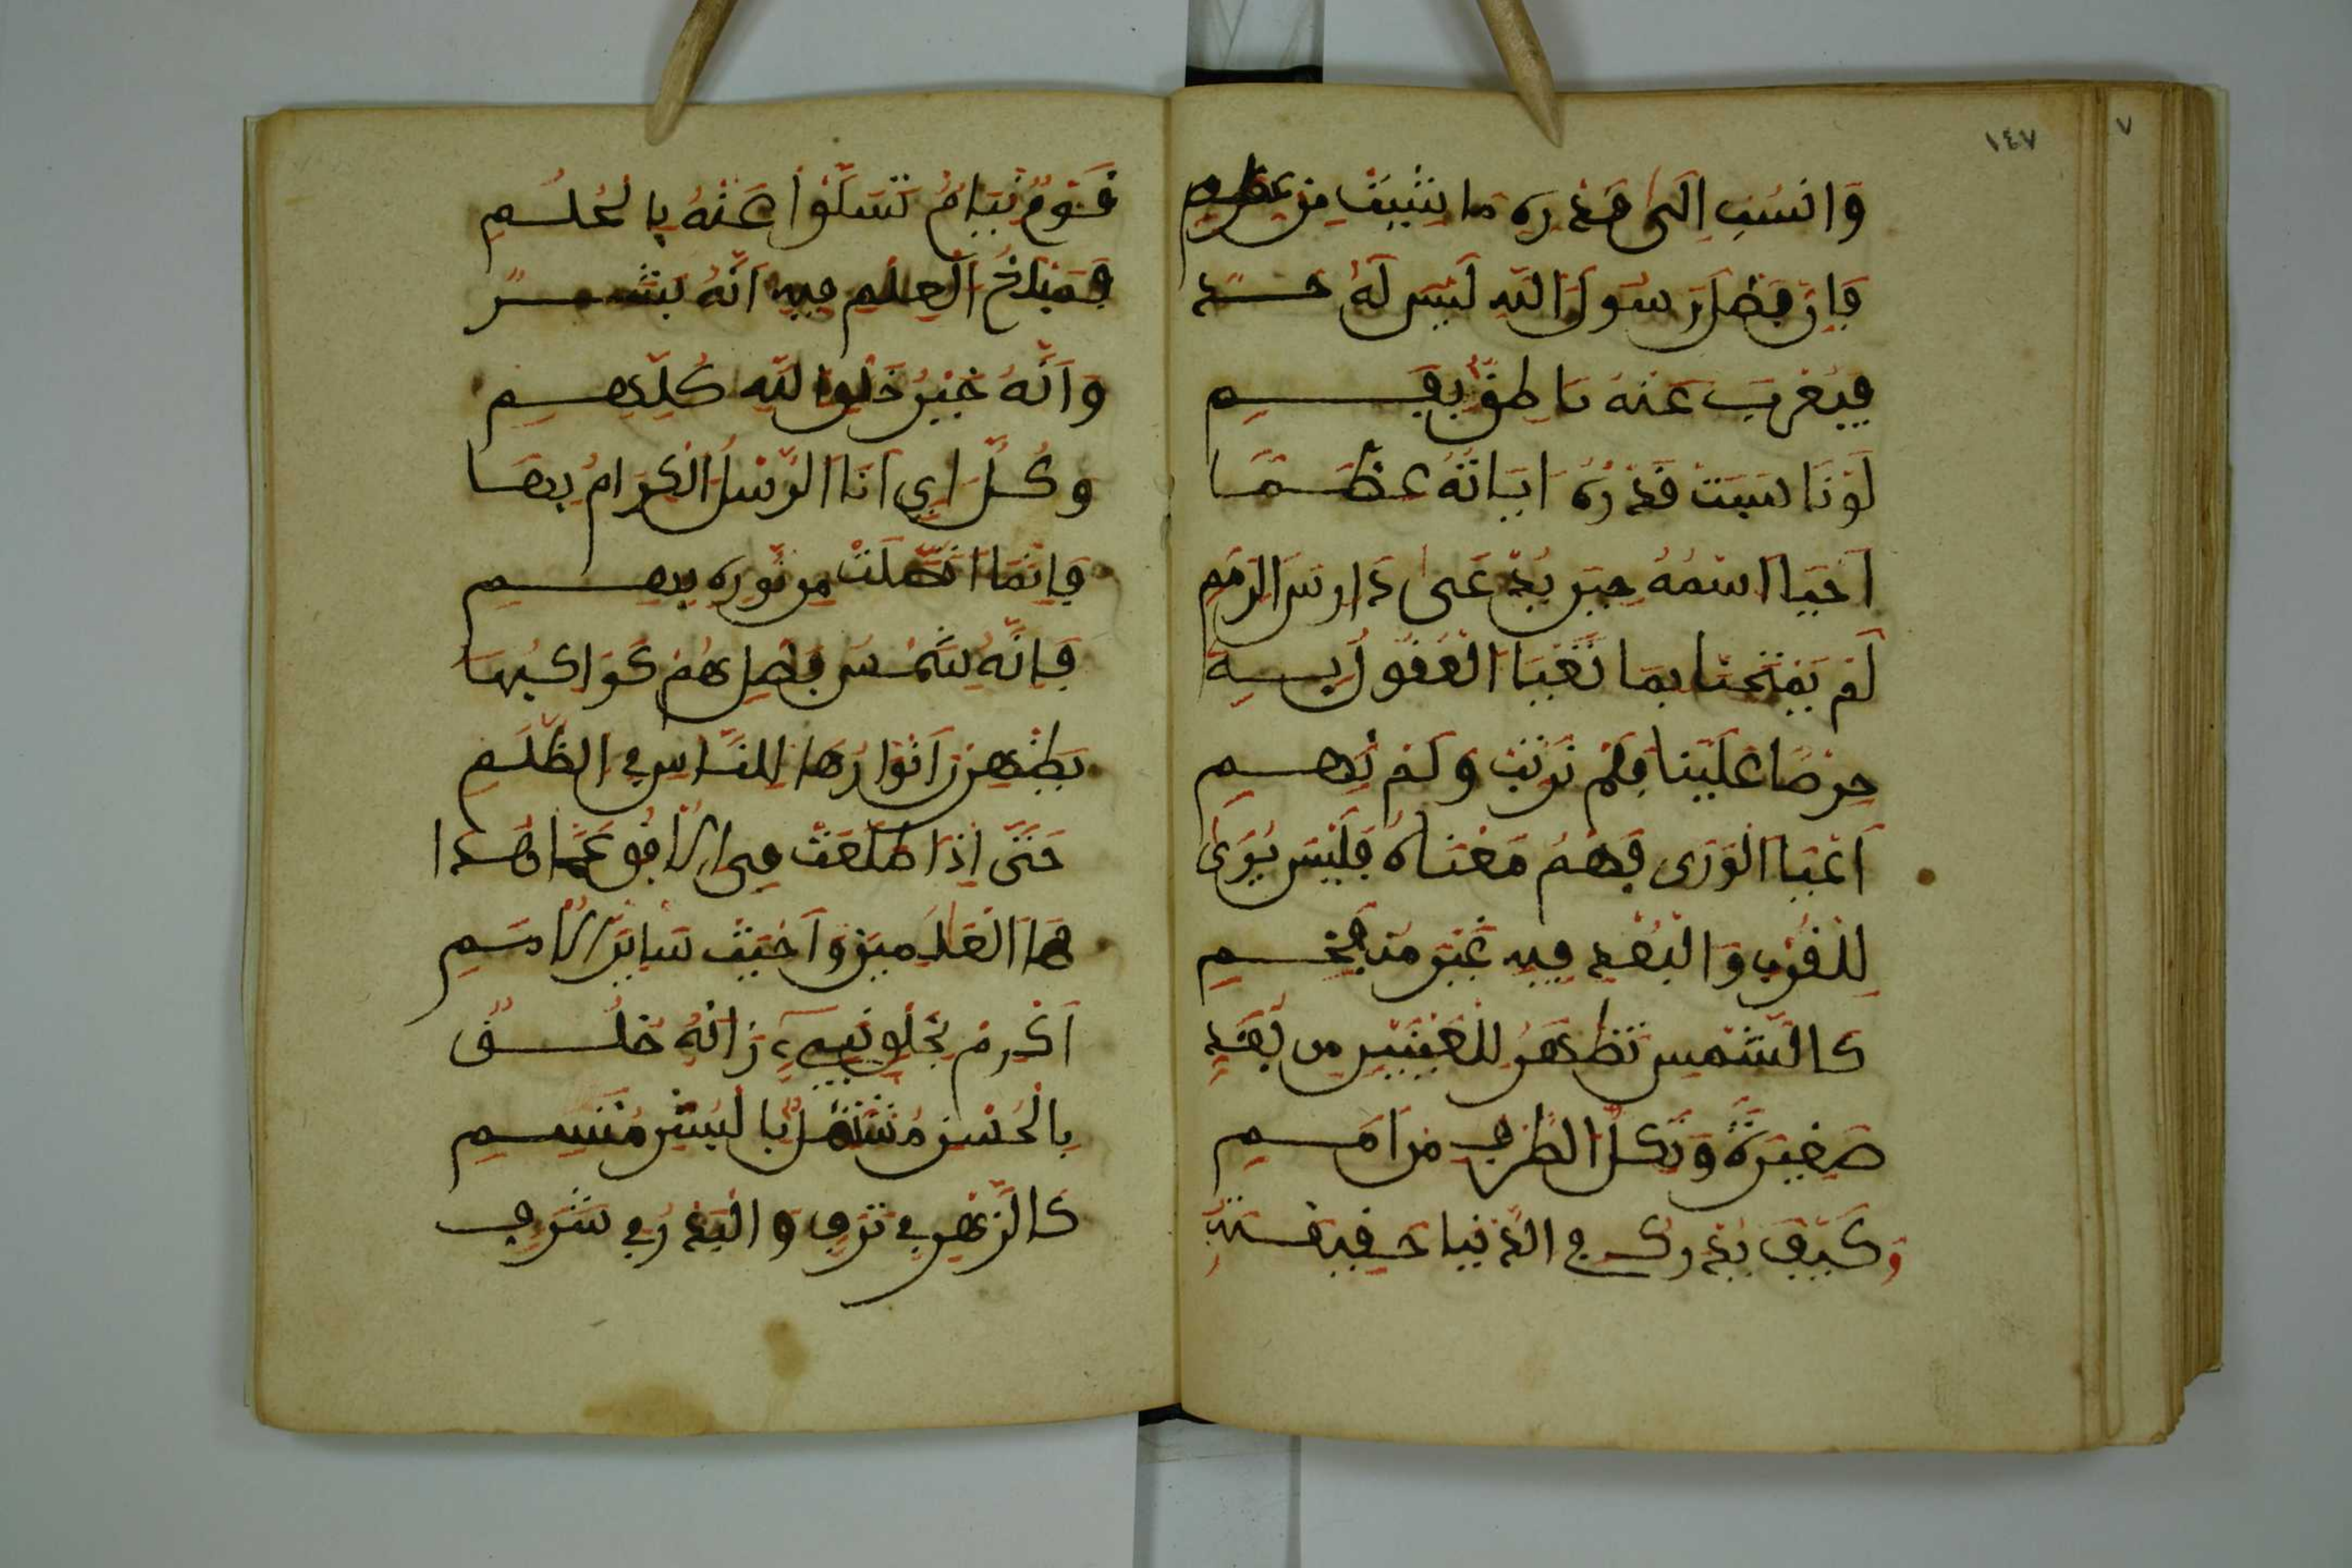 ١٤٧
٧
وَانسُبِ اِلَى قَدْرِه مَا شِيتَ مِن عِظَمِ
فَإِنَّ فَضْلَ رَسُولِ اللهِ لَيْسَ لَهُ حَــدٌّ
فَيُعْرِبَ عَنْهُ نَاطِقٌ بِفَــــمِ
لَوْ نَاسَبَتْ قَدْرَهُ ايَاتُهُ عِظَــمًا
اَحْيَا اسْمُهُ حِينَ يُدْعَى دَارِسَ الرِّمَمِ
لَمْ يَمْتَحِنَّا بِمَا تَعْيَا الْعُقُولُ بِــهِ
حِرْصًا عَلَيْنَا فَلَمْ نَرْتَبْ وَلَمْ نَهِــمِ
اَعْيَا الْوَرَى فَهْمُ مَعْنَاهُ فَلَيْسَ يُرَى
لِلْقُرْبِ وَالْبُعْدِ فِيهِ غَيْرُ مُنْفَحِــمِ
كَالشَّمْسِ تَظْهَرُ لِلْعَيْنَيْنِ مِن بُعُدٍ
صَغِيرَةً وَتَكِلُّ الطَّرْفَ مِن اَمَــمِ
وَكَيْفَ يُدْرِكُ فِي الدُّنْيَا حَقِيقَــتَهُ
قَوْمٌ نِيَامٌ تَسَلَّوْا عَنْهُ بِالْحُلُــمِ
فَمَبْلَغُ الْعِلْمِ فِيهِ اَنَّهُ بَشَــرٌ
وَاَنَّهُ خَيْرُ خَلْقِ اللهِ كُلِّهِــمِ
وَكُلُّ اىٍ اَتَا الرُّسْلُ الْكِرَامُ بِهَــا
فَإِنَّمَا اتَّصَلَتْ مِن نُّورِهِ بِهِــمِ
فَإِنَّهُ شَمْسُ فَضْلٍ هُمْ كَوَاكِبُهَا
يُظْهِرْنَ اَنْوَارَهَا لِلنَّاسِ فِي الظُّلَمِ
حَتَّى إِذَا طَلَعَتْ فِي الْاُفْقِ عَمَّ هُدَا
هَا الْعَالَمِينَ وَاَحْيَتْ سَايِرَ الْاُمَــمِ
اَكْرِمْ بِخَلْقِ نَبِيٍّ زَانَهُ خُلُــقٌ
بِالْحُسْنِ مُشْتَمِلٍ بِالْبِشْرِ مُتَّسِــمِ
كَالزَّهْرِ فِي تَرَفٍ وَالْبَدْرِ فِي شَرَفٍ